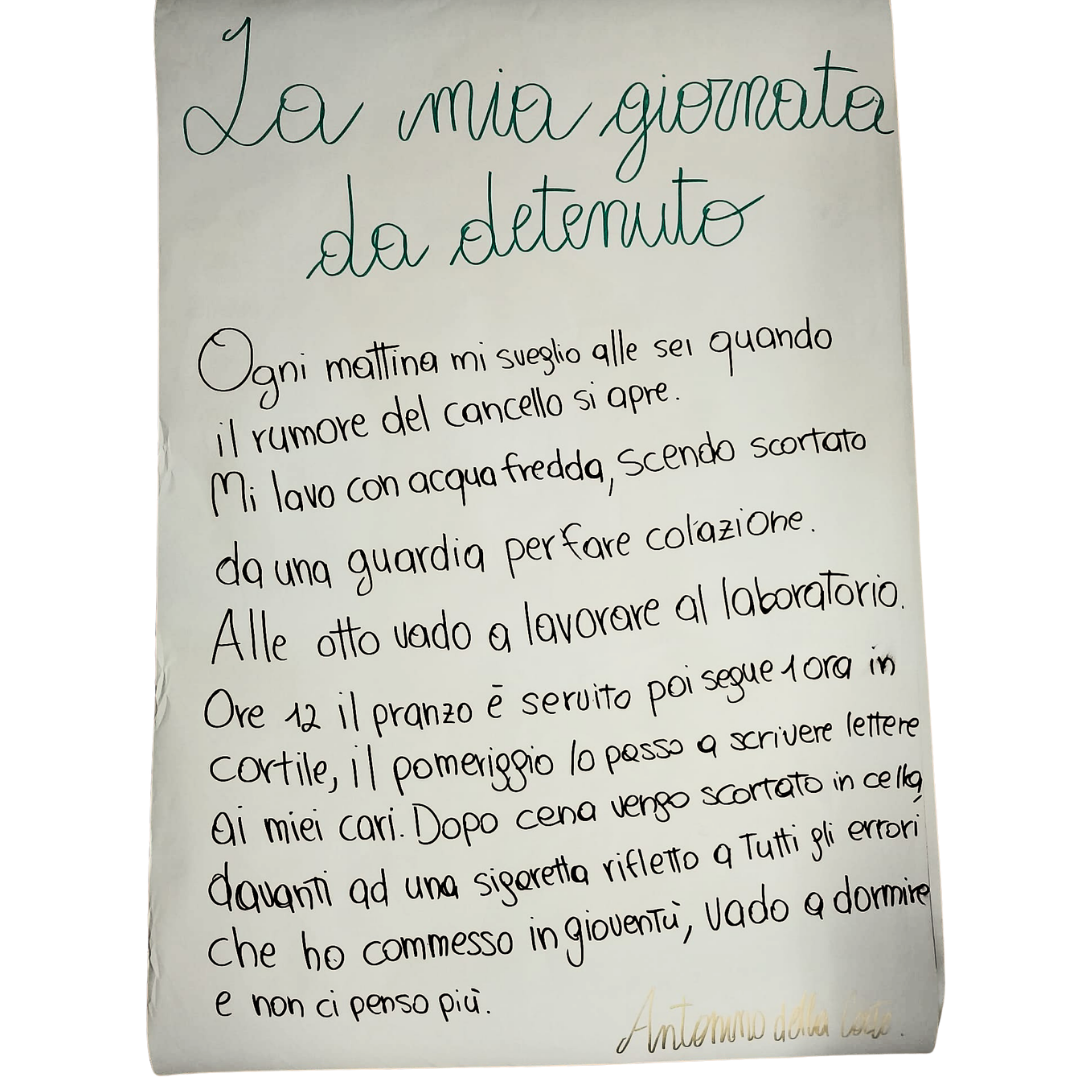 La mia giornata
da detenuto
Ogni mattina mi sveglio alle sei quando
il rumore del cancello si apre.
Mi lavo con acqua fredda, scendo scortato
da una guardia per fare colazione.
Alle otto vado a lavorare al laboratorio.
Ore 12 il pranzo è servito poi segue 1 ora in
cortile, il pomeriggio lo passo a scrivere lettere
ai miei cari. Dopo cena vengo scortato in cella,
davanti ad una sigaretta rifletto a tutti gli errori
che ho commesso in gioventù, vado a dormire
e non ci penso più.
Antonino della